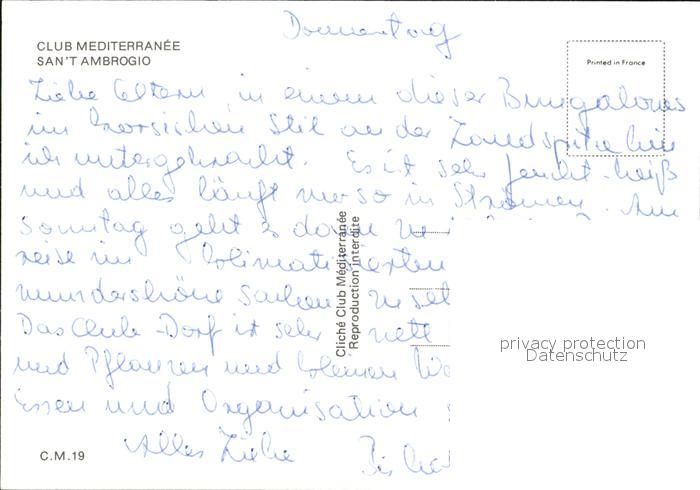 Donnerstag
CLUB MEDITERRANÉE
SAN'T AMBROGIO
Printed in France
Liebe Eltern, in einem dieser Bungalows
im korsischen Stil an der Landspitze bin
ich untergebracht. Es ist sehr feucht-heiß
und alles läuft nur so in Strömen. Am
Sonntag geht es dann zu
reise im klimatisierten
wunderschöne Sachen zu seh
Das Club-Dorf ist sehr nett
und Pflanzen und kleinen We
Essen und Organisation
Alles Liebe
Cliché Club Méditerranée
Reproduction interdite
privacy protection
Datenschutz
C.M.19